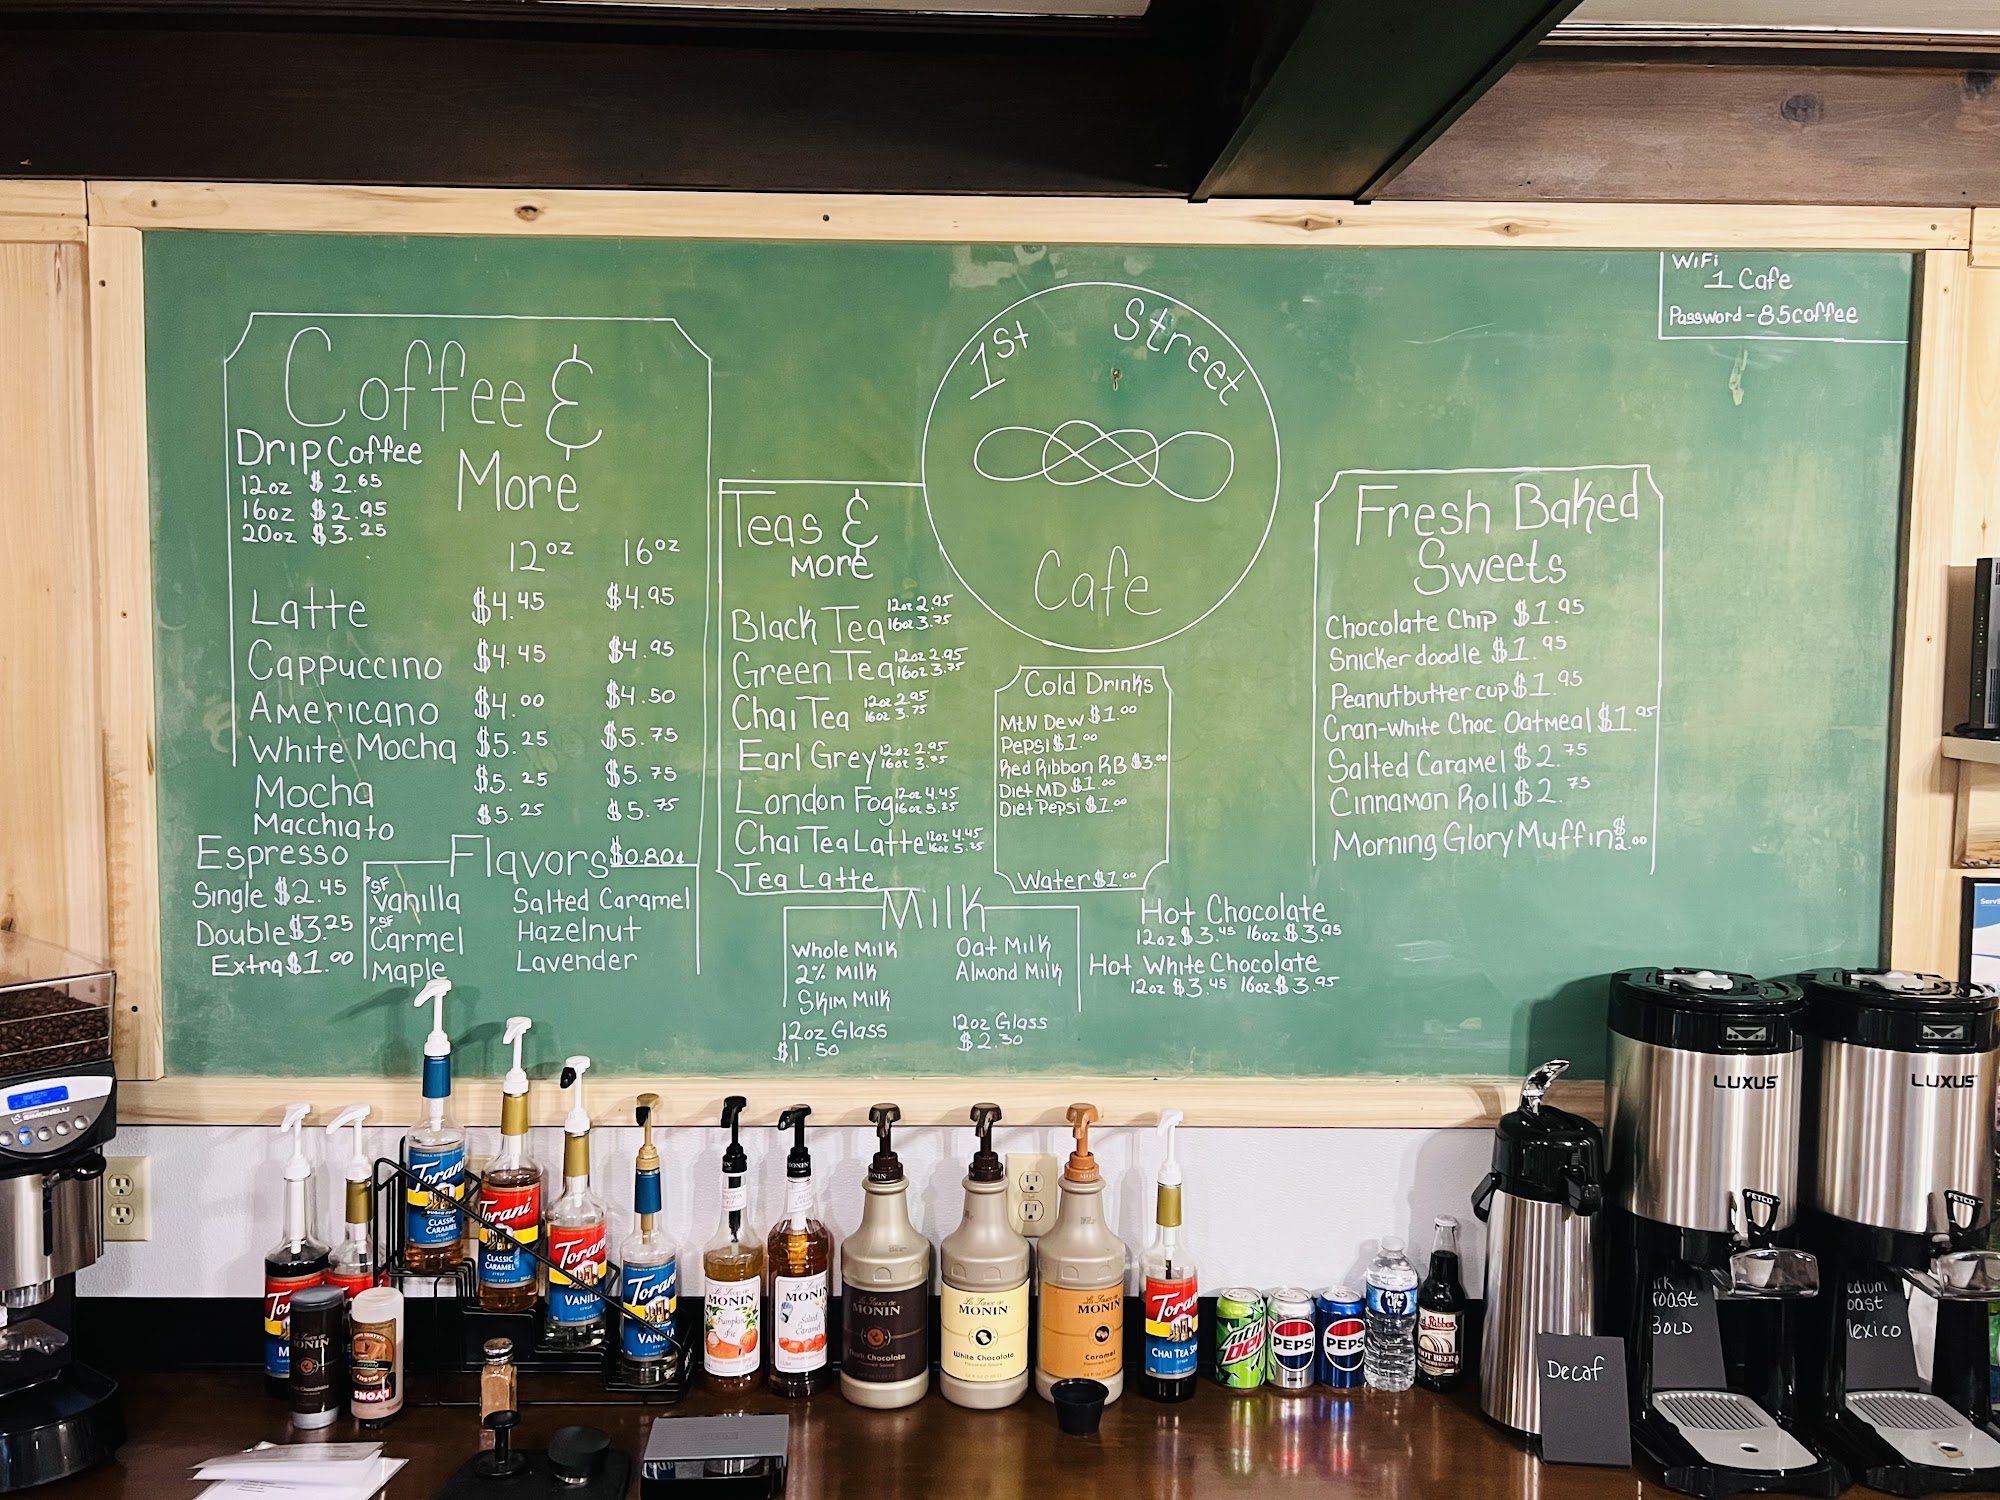 WiFi
1 Cafe
Password - 85coffee
1st Street
Cafe
Coffee &
More
Drip Coffee
12oz $2.65
16oz $2.95
20oz $3.25
12oz 16oz
Latte $4.45 $4.95
Cappuccino $4.45 $4.95
Americano $4.00 $4.50
White Mocha $5.25 $5.75
Mocha $5.25 $5.75
Macchiato $5.25 $5.75
Espresso
Single $2.45
Double $3.25
Extra $1.00
Flavors $0.80¢
*SF Vanilla
*SF Carmel
Maple
Salted Caramel
Hazelnut
Lavender
Teas &
More
Black Tea 12oz 2.95 16oz 3.75
Green Tea 12oz 2.95 16oz 3.75
Chai Tea 12oz 2.95 16oz 3.75
Earl Grey 12oz 2.95 16oz 3.75
London Fog 12oz 4.45 16oz 5.25
Chai Tea Latte 12oz 4.45 16oz 5.25
Tea Latte
Cold Drinks
Mtn Dew $1.00
Pepsi $1.00
Red Ribbon RB $3.00
Diet MD $1.00
Diet Pepsi $1.00
Water $1.00
Milk
Whole Milk
2% Milk
Skim Milk
12oz Glass
$1.50
Oat Milk
Almond Milk
12oz Glass
$2.30
Hot Chocolate
12oz $3.45 16oz $3.95
Hot White Chocolate
12oz $3.45 16oz $3.95
Fresh Baked
Sweets
Chocolate Chip $1.95
Snickerdoodle $1.95
Peanutbutter cup $1.95
Cran-White Choc Oatmeal $1.95
Salted Caramel $2.75
Cinnamon Roll $2.75
Morning Glory Muffin $2.00
SIMONELLI
Torani
CLASSIC
CARAMEL
Torani
CLASSIC
CARAMEL
Torani
VANILLA
Torani
VANILLA
MONIN
Pumpkin
Pie
MONIN
Salted
Caramel
MONIN
Dark Chocolate
MONIN
White Chocolate
MONIN
Caramel
Torani
CHAI TEA
LYONS
Mtn
Dew
PEPSI
PEPSI
Pure
Life
Red Ribbon
ROOT BEER
Decaf
LUXUS
FETCO
LUXUS
FETCO
roast
BOLD
Mexico